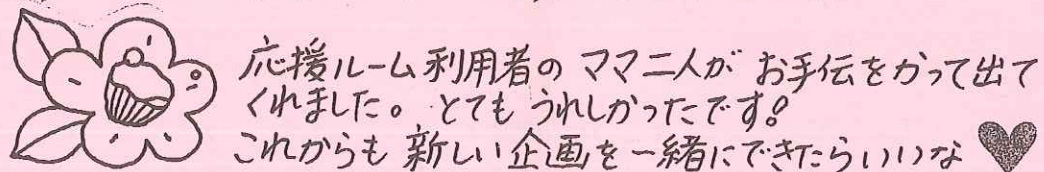 応援ルーム利用者のママ二人がお手伝をかって出て
くれました。とてもうれしかったです。
これからも新しい企画を一緒にできたらいいな